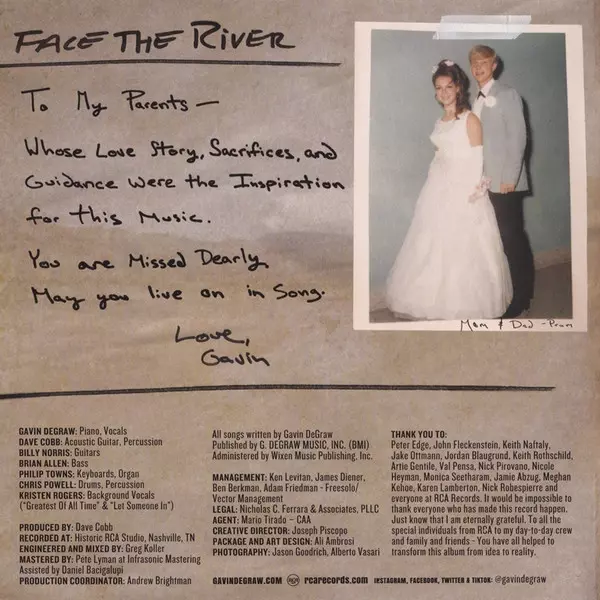 FACE THE RIVER
To My Parents —
Whose Love Story, Sacrifices, and
Guidance were the Inspiration
for this Music.
You are Missed Dearly
May you live on in Song.
Love,
Gavin
Mom & Dad - Prom
GAVIN DEGRAW: Piano, Vocals
DAVE COBB: Acoustic Guitar, Percussion
BILLY NORRIS: Guitars
BRIAN ALLEN: Bass
PHILIP TOWNS: Keyboards, Organ
CHRIS POWELL: Drums, Percussion
KRISTEN ROGERS: Background Vocals
("Greatest Of All Time" & "Let Someone In")
PRODUCED BY: Dave Cobb
RECORDED AT: Historic RCA Studio, Nashville, TN
ENGINEERED AND MIXED BY: Greg Koller
MASTERED BY: Pete Lyman at Infrasonic Mastering
Assisted by Daniel Bacigalupi
PRODUCTION COORDINATOR: Andrew Brightman
All songs written by Gavin DeGraw
Published by G. DEGRAW MUSIC, INC. (BMI)
Administered by Wixen Music Publishing, Inc.
MANAGEMENT: Ken Levitan, James Diener,
Ben Berkman, Adam Friedman - Freesolo/
Vector Management
LEGAL: Nicholas C. Ferrara & Associates, PLLC
AGENT: Mario Tirado – CAA
CREATIVE DIRECTOR: Joseph Piscopo
PACKAGE AND ART DESIGN: Ali Ambrosi
PHOTOGRAPHY: Jason Goodrich, Alberto Vasari
THANK YOU TO:
Peter Edge, John Fleckenstein, Keith Naftaly,
Jake Ottmann, Jordan Blaugrund, Keith Rothschild,
Artie Gentile, Val Pensa, Nick Pirovano, Nicole
Heyman, Monica Seetharam, Jamie Abzug, Meghan
Kehoe, Karen Lamberton, Nick Robespierre and
everyone at RCA Records. It would be impossible to
thank everyone who has made this record happen.
Just know that I am eternally grateful. To all the
special individuals from RCA to my day-to-day crew
and family and friends - You have all helped to
transform this album from idea to reality.
GAVINDEGRAW.COM RCA rcarecords.com INSTAGRAM, FACEBOOK, TWITTER & TIKTOK: @gavindegraw